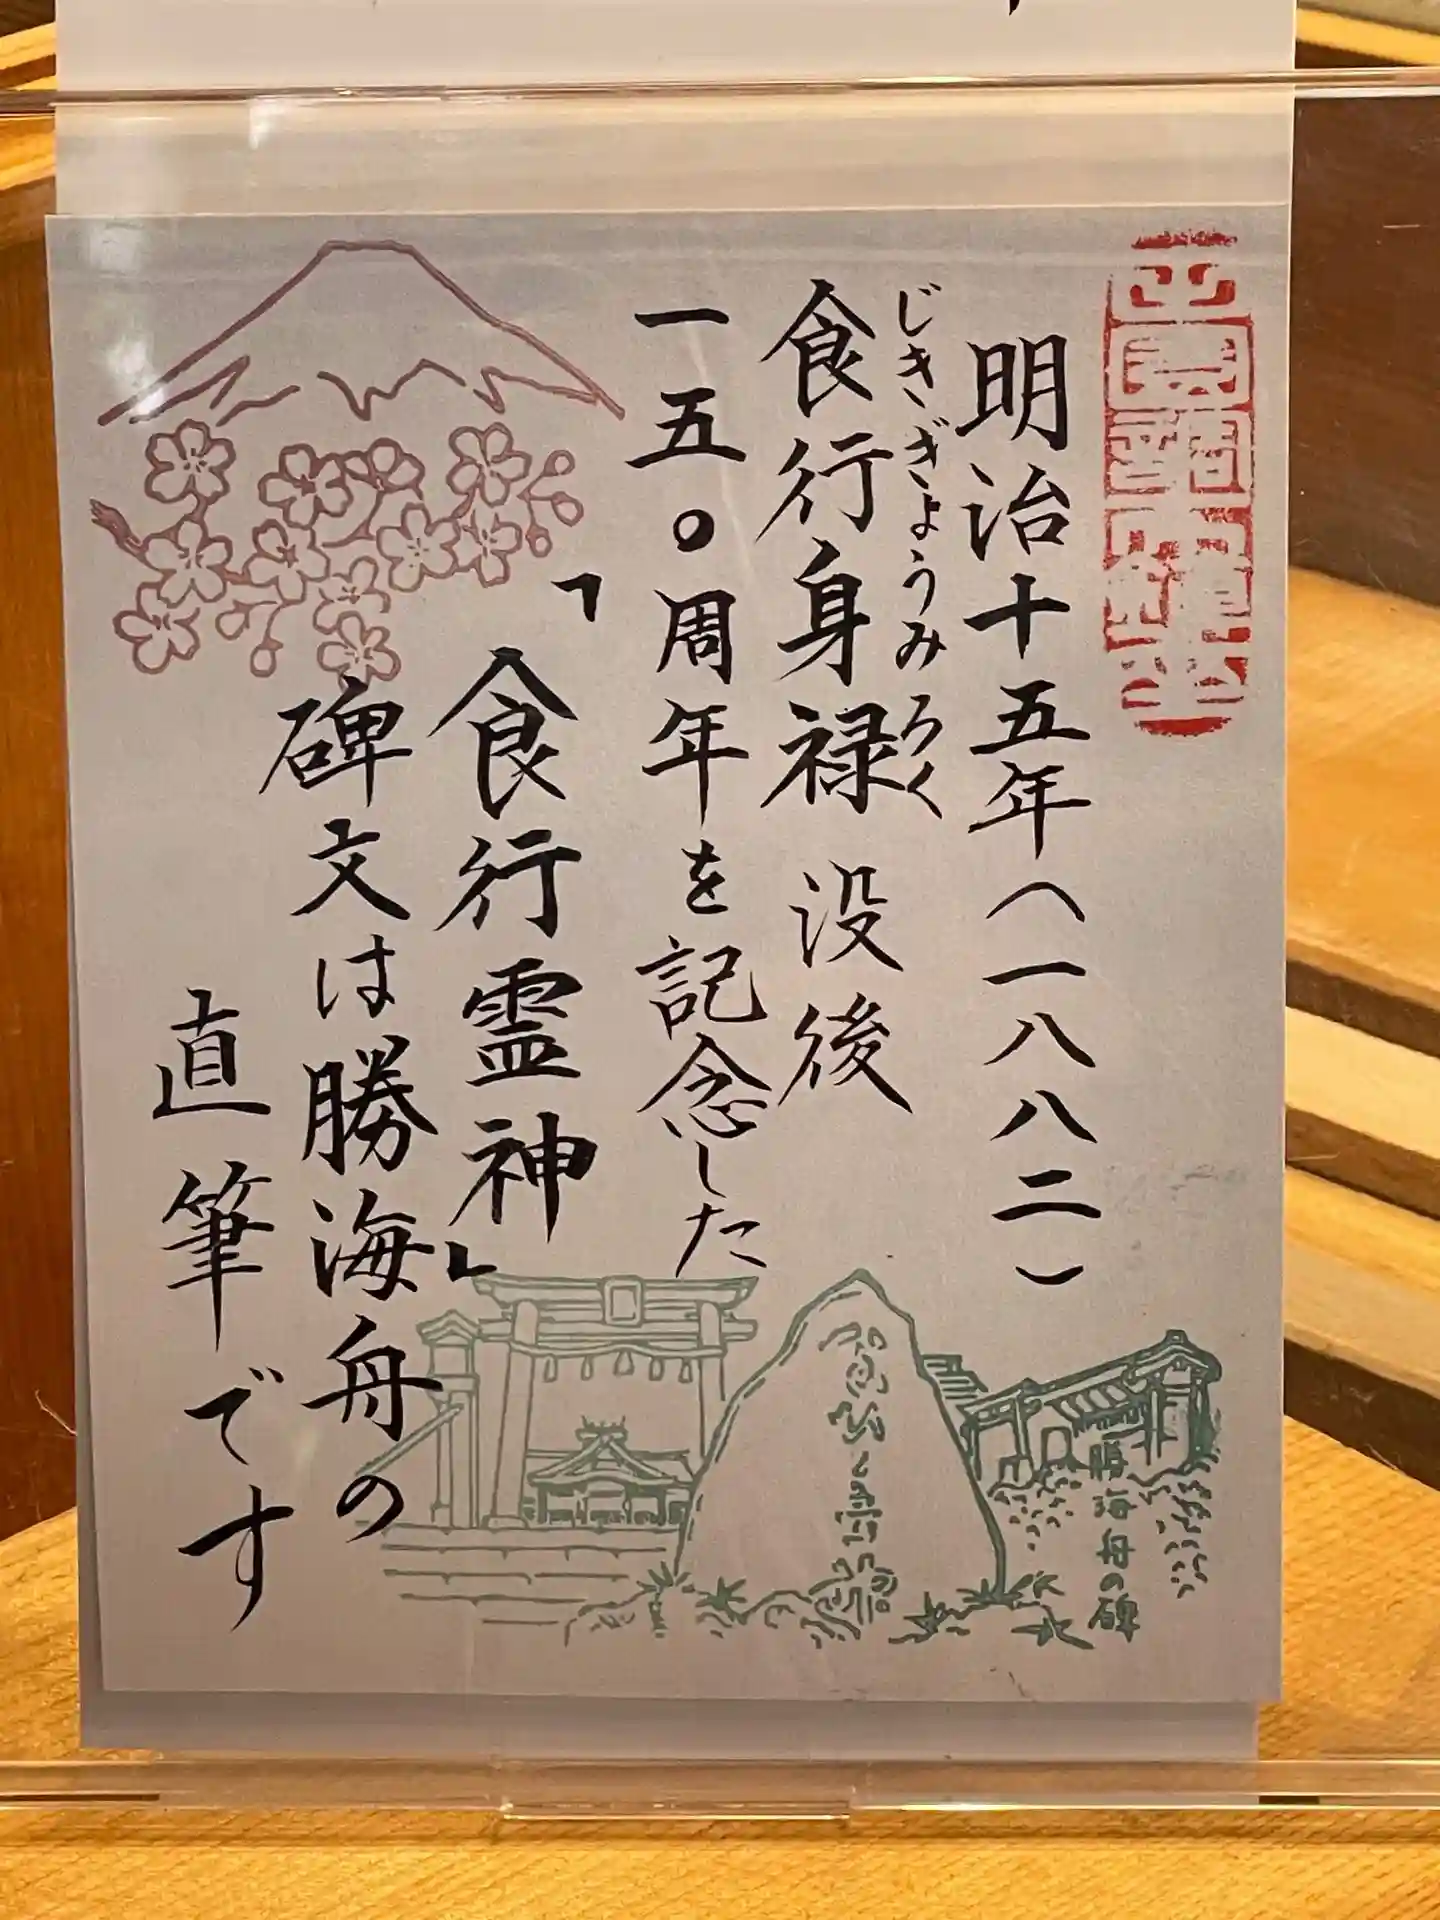 明治十五年(一八八二)
じきぎょうみろく
食行身禄 没後
一五〇周年を記念した
「食行霊神」
碑文は勝海舟の
直筆です
勝海舟の碑